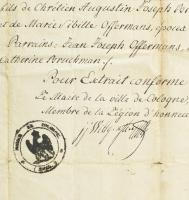 fils de Chrétien Augustin Joseph
et de Marie Sibille Offermans, époux
Parrains: Jean Joseph Offermans,
Catherine Bruckman
Pour Extrait conforme
Le Maire de la ville de Cologne,
Membre de la Légion d'honneur